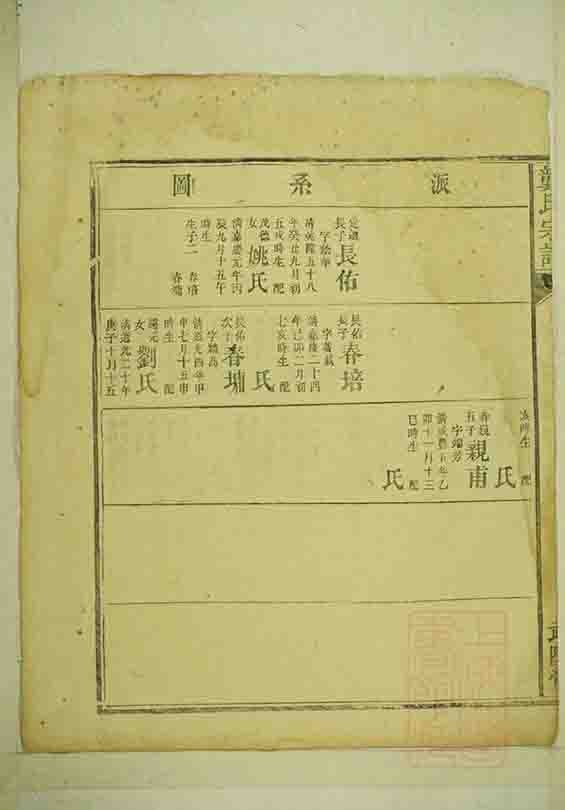 派系圖
長子
長佑
清乾隆五十八
年癸丑九月初
五戌時生 配
茂德
女
姚氏
清嘉慶元年丙
辰九月十五午
時生
生子二 春培
春墉
長佑
長子
春培
清嘉慶二十四
年己卯二月初
七亥時生 配
氏
長佑
次子
春墉
清道光四年甲
申七月十五申
時生 配
女
劉氏
清道光二十年
庚子十月十五
次丙生 配
氏
五子
親甫
字瑞芳
清咸豐五年乙
卯十一月十三
巳時生 配
氏
龔氏宗譜